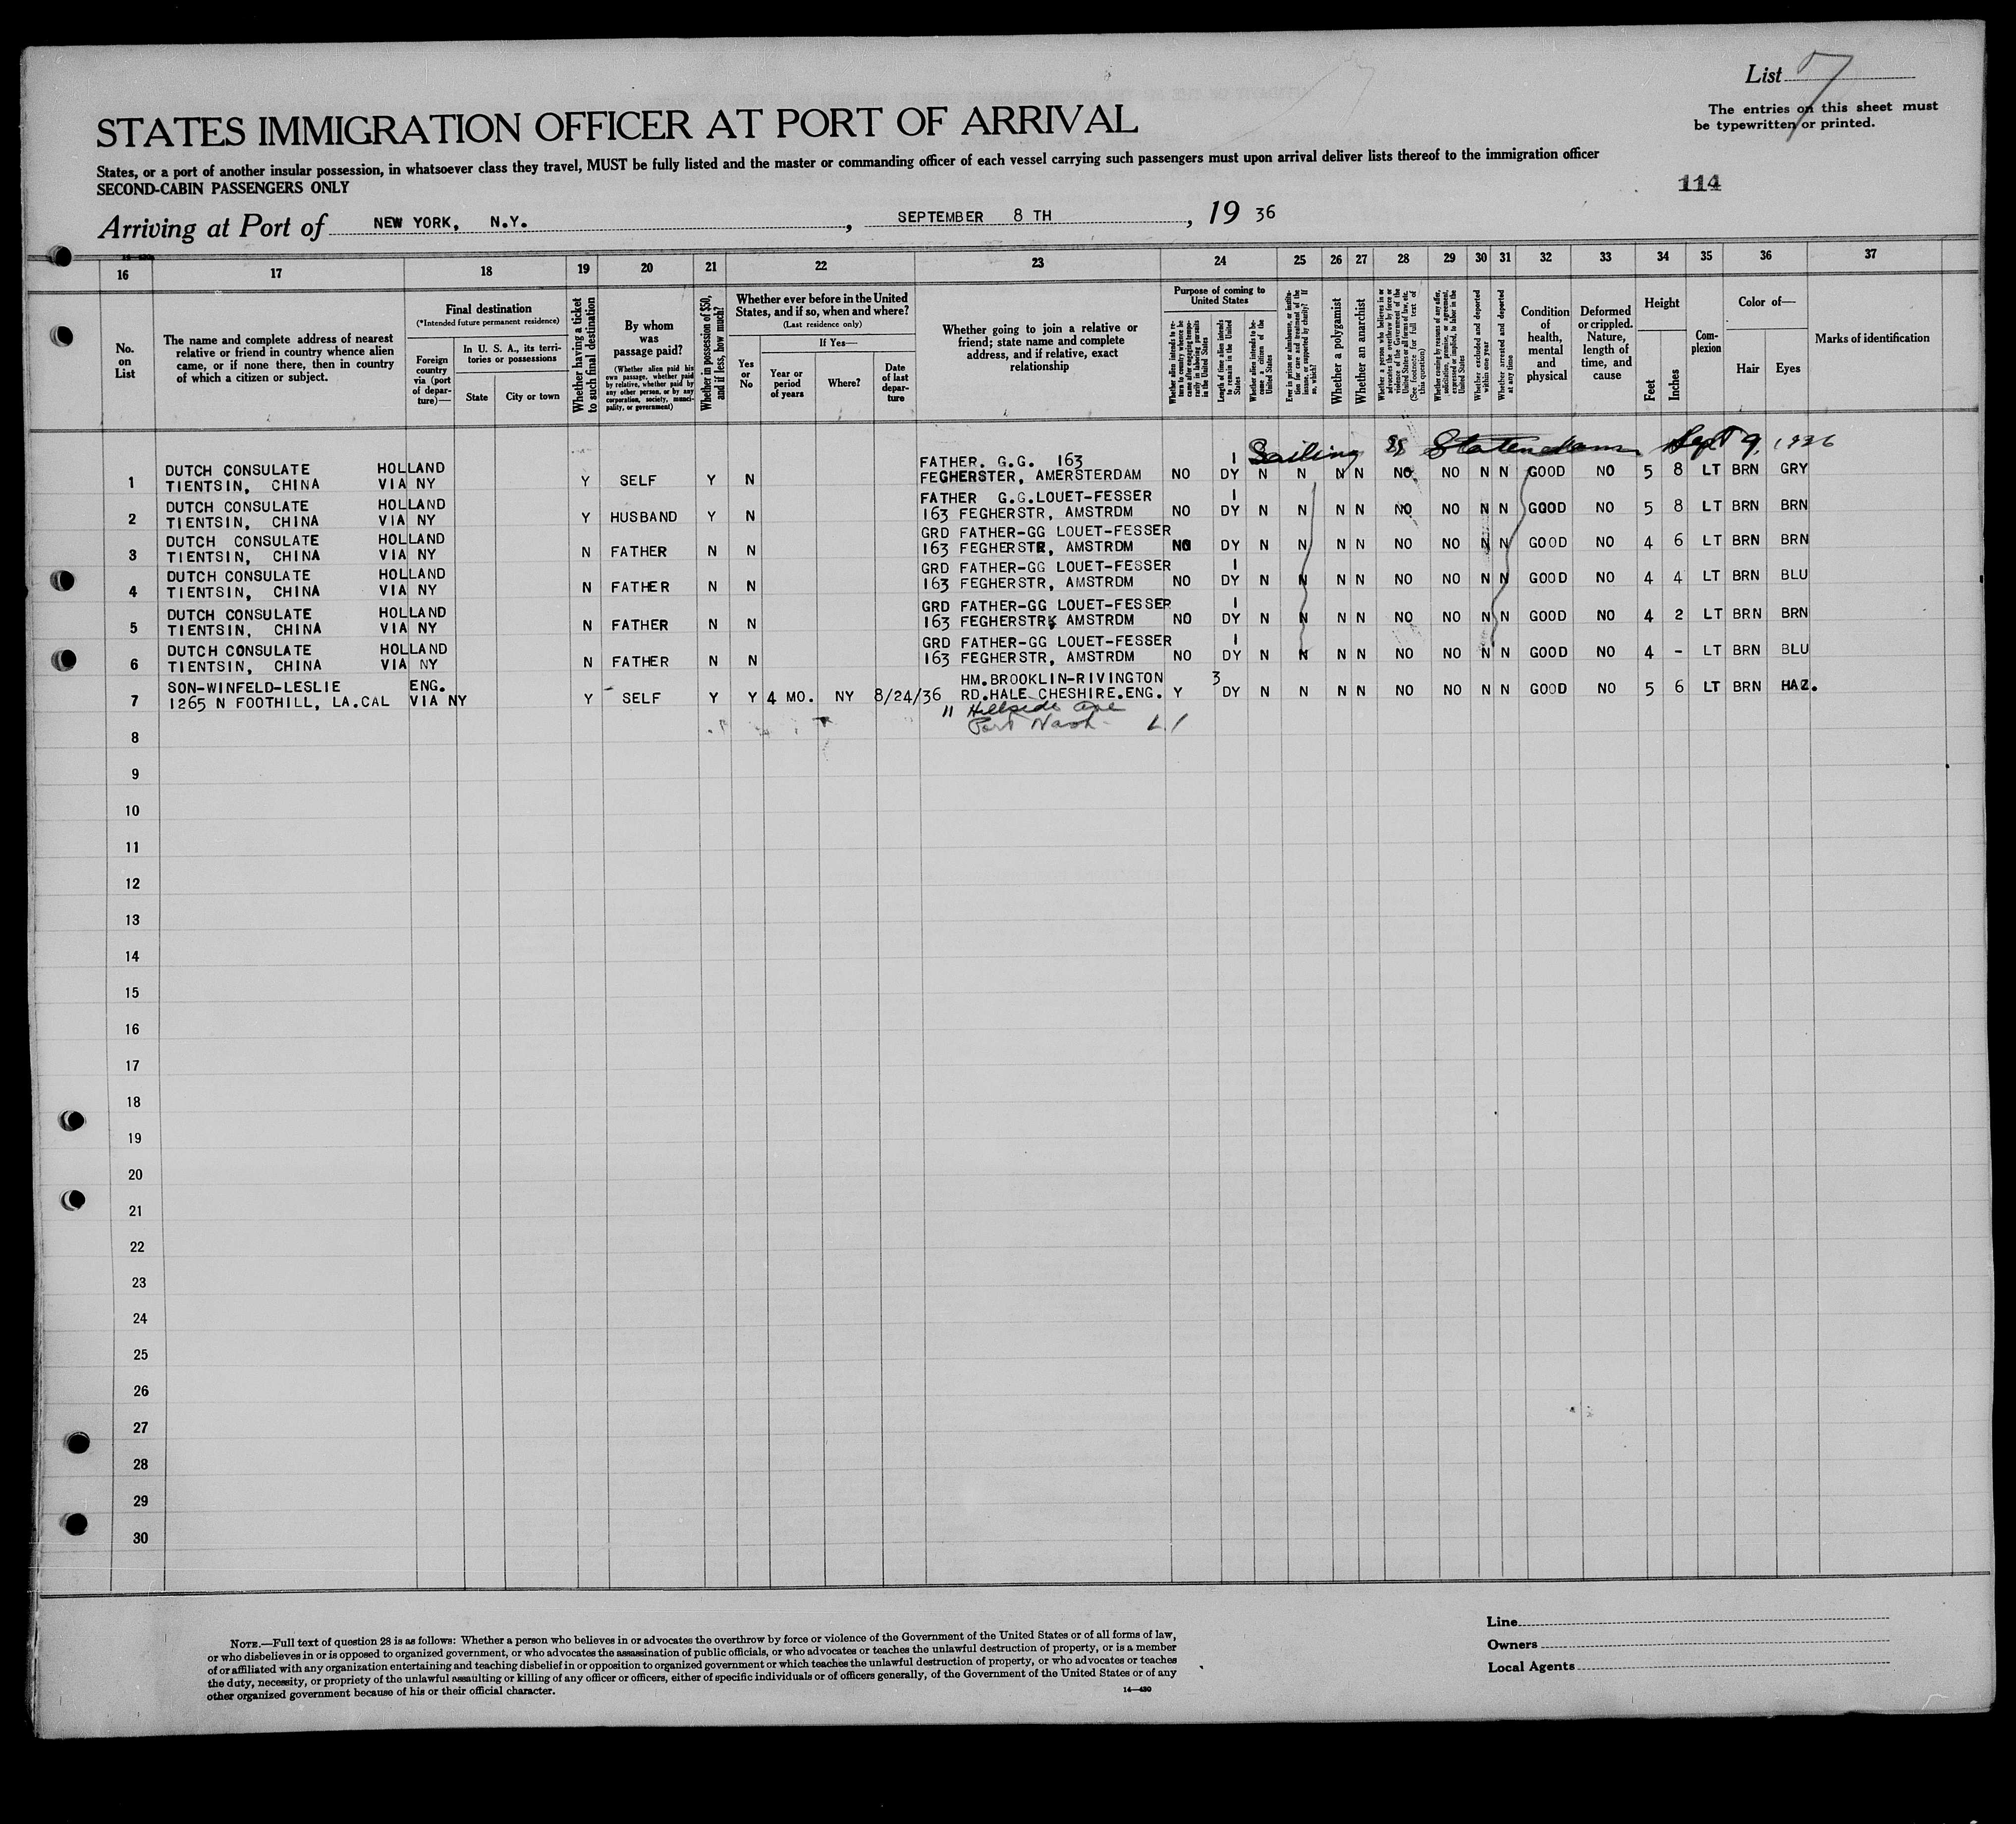 List 7
The entries on this sheet must
be typewritten or printed.
STATES IMMIGRATION OFFICER AT PORT OF ARRIVAL
States, or a port of another insular possession, in whatsoever class they travel, MUST be fully listed and the master or commanding officer of each vessel carrying such passengers must upon arrival deliver lists thereof to the immigration officer
SECOND-CABIN PASSENGERS ONLY
114
Arriving at Port of NEW YORK, N.Y. , SEPTEMBER 8 TH , 19 36
16 17 18 19 20 21 22 23 24 25 26 27 28 29 30 31 32 33 34 35 36 37
No. on List
The name and complete address of nearest relative or friend in country whence alien came, or if none there, then in country of which a citizen or subject.
Final destination
(*Intended future permanent residence)
Foreign country via (port of departure)—
In U. S. A., its territories or possessions
State
City or town
Whether having a ticket to such final destination
By whom was passage paid?
(Whether alien paid his own passage, whether paid by relative, whether paid by any other person, or by any corporation, society, municipality, or government)
Whether in possession of $50, and if less, how much?
Whether ever before in the United States, and if so, when and where?
(Last residence only)
Yes or No
If Yes—
Year or period of years
Where?
Date of last departure
Whether going to join a relative or friend; state name and complete address, and if relative, exact relationship
Purpose of coming to United States
Whether alien intends to return to country whence he came after engaging temporarily in laboring pursuits in the United States
Length of time alien intends to remain in the United States
Whether alien intends to become a citizen of the United States
Ever in prison or almshouse, or institution for care and treatment of the insane, or supported by charity? If so, which?
Whether a polygamist
Whether an anarchist
Whether a person who believes in or advocates the overthrow by force or violence of the Government of the United States or all forms of law, etc. (See footnote for full text of this question)
Whether coming by reasons of any offer, solicitation, promise, or agreement, expressed or implied, to labor in the United States
Whether excluded and deported within one year
Whether arrested and deported at any time
Condition of health, mental and physical
Deformed or crippled. Nature, length of time, and cause
Height
Feet
Inches
Complexion
Color of—
Hair
Eyes
Marks of identification
Sailing SS Statendam Sept 9, 1936
DUTCH CONSULATE HOLLAND FATHER. G.G. 163 1
1 TIENTSIN, CHINA VIA NY Y SELF Y N FEGHERSTER, AMERSTERDAM NO DY N N N N NO NO N N GOOD NO 5 8 LT BRN GRY
DUTCH CONSULATE HOLLAND FATHER G.G.LOUET-FESSER 1
2 TIENTSIN, CHINA VIA NY Y HUSBAND Y N 163 FEGHERSTR, AMSTRDM NO DY N N N N NO NO N N GOOD NO 5 8 LT BRN BRN
DUTCH CONSULATE HOLLAND GRD FATHER-GG LOUET-FESSER
3 TIENTSIN, CHINA VIA NY N FATHER N N 163 FEGHERSTR, AMSTRDM NO DY N N N N NO NO N N GOOD NO 4 6 LT BRN BRN
DUTCH CONSULATE HOLLAND GRD FATHER-GG LOUET-FESSER 1
4 TIENTSIN, CHINA VIA NY N FATHER N N 163 FEGHERSTR, AMSTRDM NO DY N N N N NO NO N N GOOD NO 4 4 LT BRN BLU
DUTCH CONSULATE HOLLAND GRD FATHER-GG LOUET-FESSER 1
5 TIENTSIN, CHINA VIA NY N FATHER N N 163 FEGHERSTR, AMSTRDM NO DY N N N N NO NO N N GOOD NO 4 2 LT BRN BRN
DUTCH CONSULATE HOLLAND GRD FATHER-GG LOUET-FESSER 1
6 TIENTSIN, CHINA VIA NY N FATHER N N 163 FEGHERSTR, AMSTRDM NO DY N N N N NO NO N N GOOD NO 4 - LT BRN BLU
SON-WINFELD-LESLIE ENG. HM.BROOKLIN-RIVINGTON 3
7 1265 N FOOTHILL, LA.CAL VIA NY Y SELF Y Y 4 MO. NY 8/24/36 RD.HALE CHESHIRE.ENG. Y DY N N N N NO NO N N GOOD NO 5 6 LT BRN HAZ.
11 Hillside Ave
Port Wash L.I
8
9
10
11
12
13
14
15
16
17
18
19
20
21
22
23
24
25
26
27
28
29
30
NOTE.—Full text of question 28 is as follows: Whether a person who believes in or advocates the overthrow by force or violence of the Government of the United States or of all forms of law,
or who disbelieves in or is opposed to organized government, or who advocates the assassination of public officials, or who advocates or teaches the unlawful destruction of property, or is a member
of or affiliated with any organization entertaining and teaching disbelief in or opposition to organized government or which teaches the unlawful destruction of property, or who advocates or teaches
the duty, necessity, or propriety of the unlawful assaulting or killing of any officer or officers, either of specific individuals or of officers generally, of the Government of the United States or of any
other organized government because of his or their official character.
14—430
Line
Owners
Local Agents